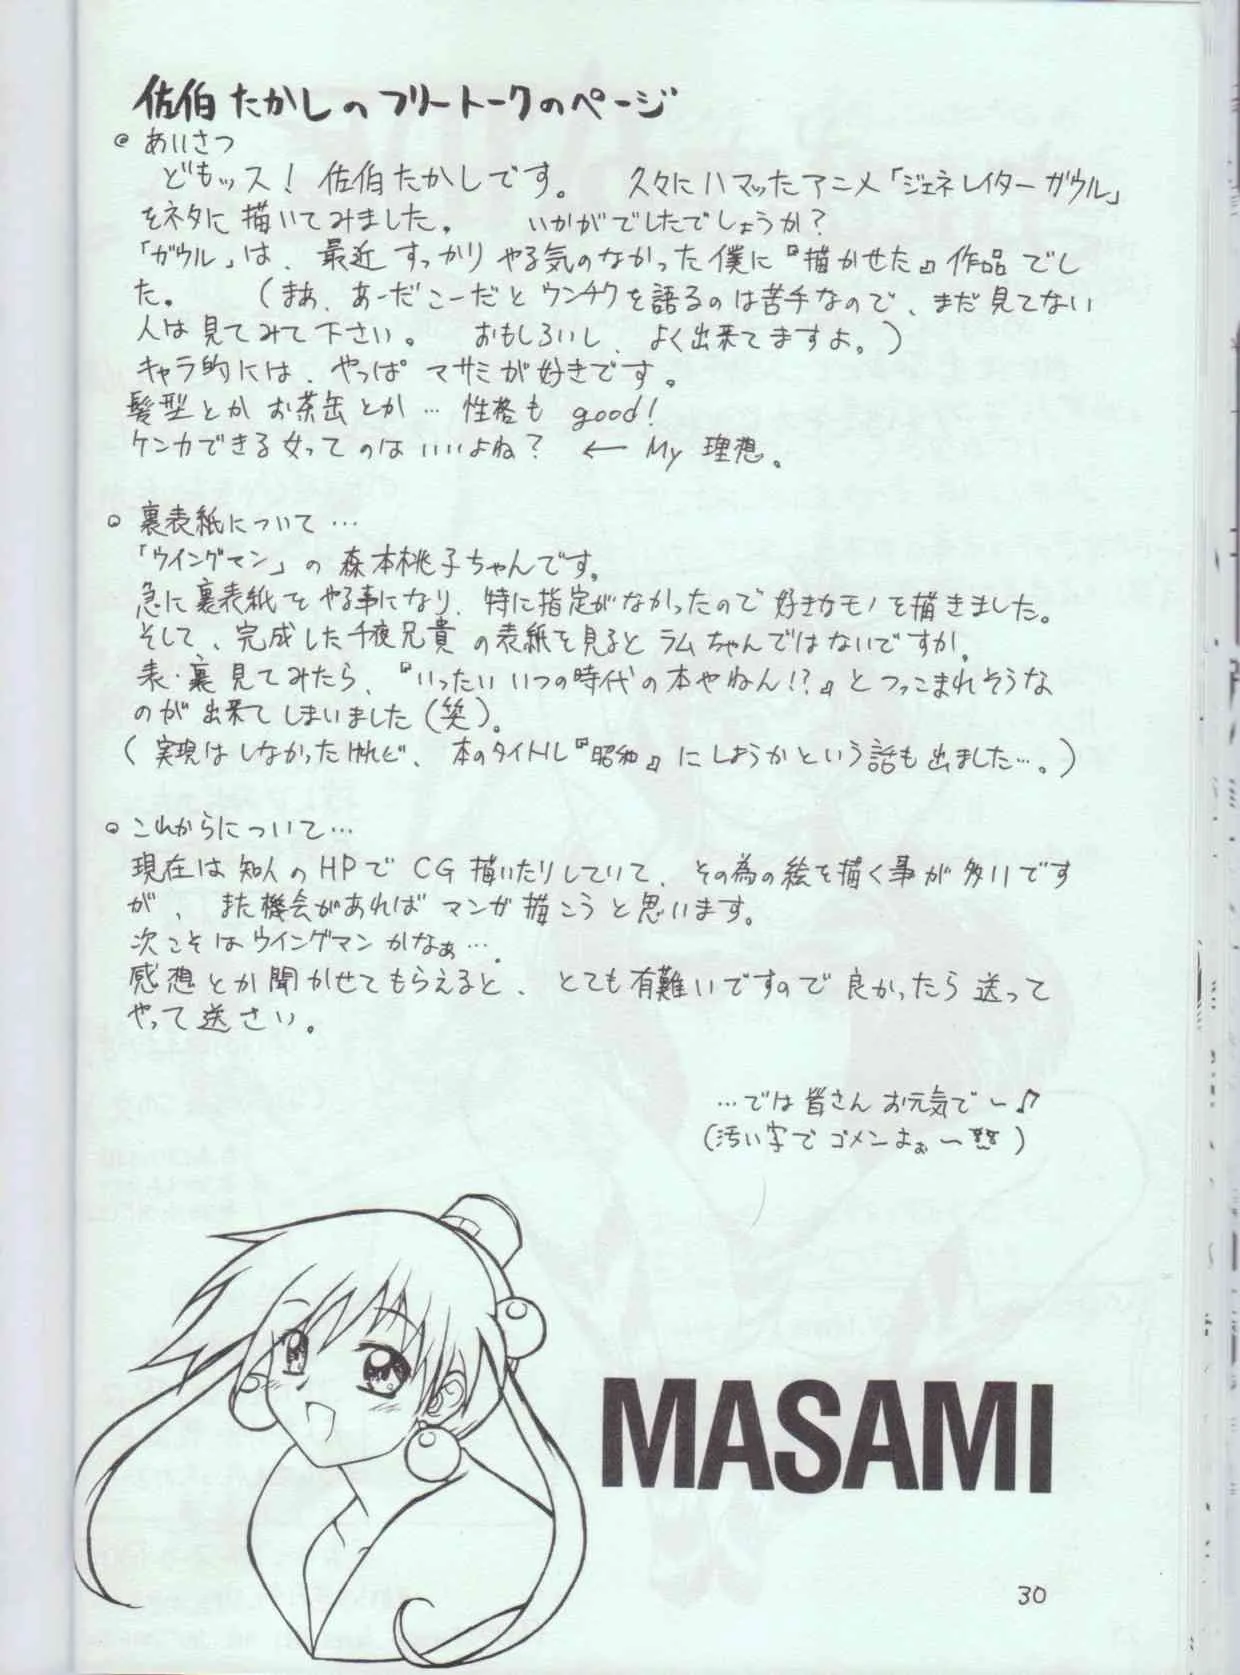 佐伯たかしのフリートークのページ
◎ あいさつ
どもッス! 佐伯たかしです。 久々にハマッたアニメ「ジェネレイターガウル」
をネタに描いてみました。 いかがでしたでしょうか?
「ガウル」は、最近すっかりやる気のなかった僕に『描かせた』作品でし
た。 (まあ、あーだこーだとウンチクを語るのは苦手なので、まだ見てない
人は見てみて下さい。 おもしろいし、よく出来てますよ。)
キャラ的には、やっぱマサミが好きです。
髪型とかお茶缶とか… 性格も good!
ケンカできる女ってのはいいよね? ← My 理想。
○ 裏表紙について…
「ウイングマン」の森本桃子ちゃんです。
急に裏表紙をやる事になり、特に指定がなかったので好きなモノを描きました。
そして、完成した千夜兄貴の表紙を見るとラムちゃんではないですか。
表・裏見てみたら、『いったいいつの時代の本やねん!?』とつっこまれそうな
のが出来てしまいました(笑)。
(実現はしなかったけれど、本のタイトル『昭和』にしようかという話も出ました…。)
○ これからについて…
現在は知人のHPでCG描いたりしていて、その為の絵を描く事が多いです
が、また機会があればマンガ描こうと思います。
次こそはウイングマンかなぁ…。
感想とか聞かせてもらえると、とても有難いですので良かったら送って
やって送さい。
…では皆さんお元気で〜♪
(汚い字でゴメンなぁ〜)
MASAMI
30